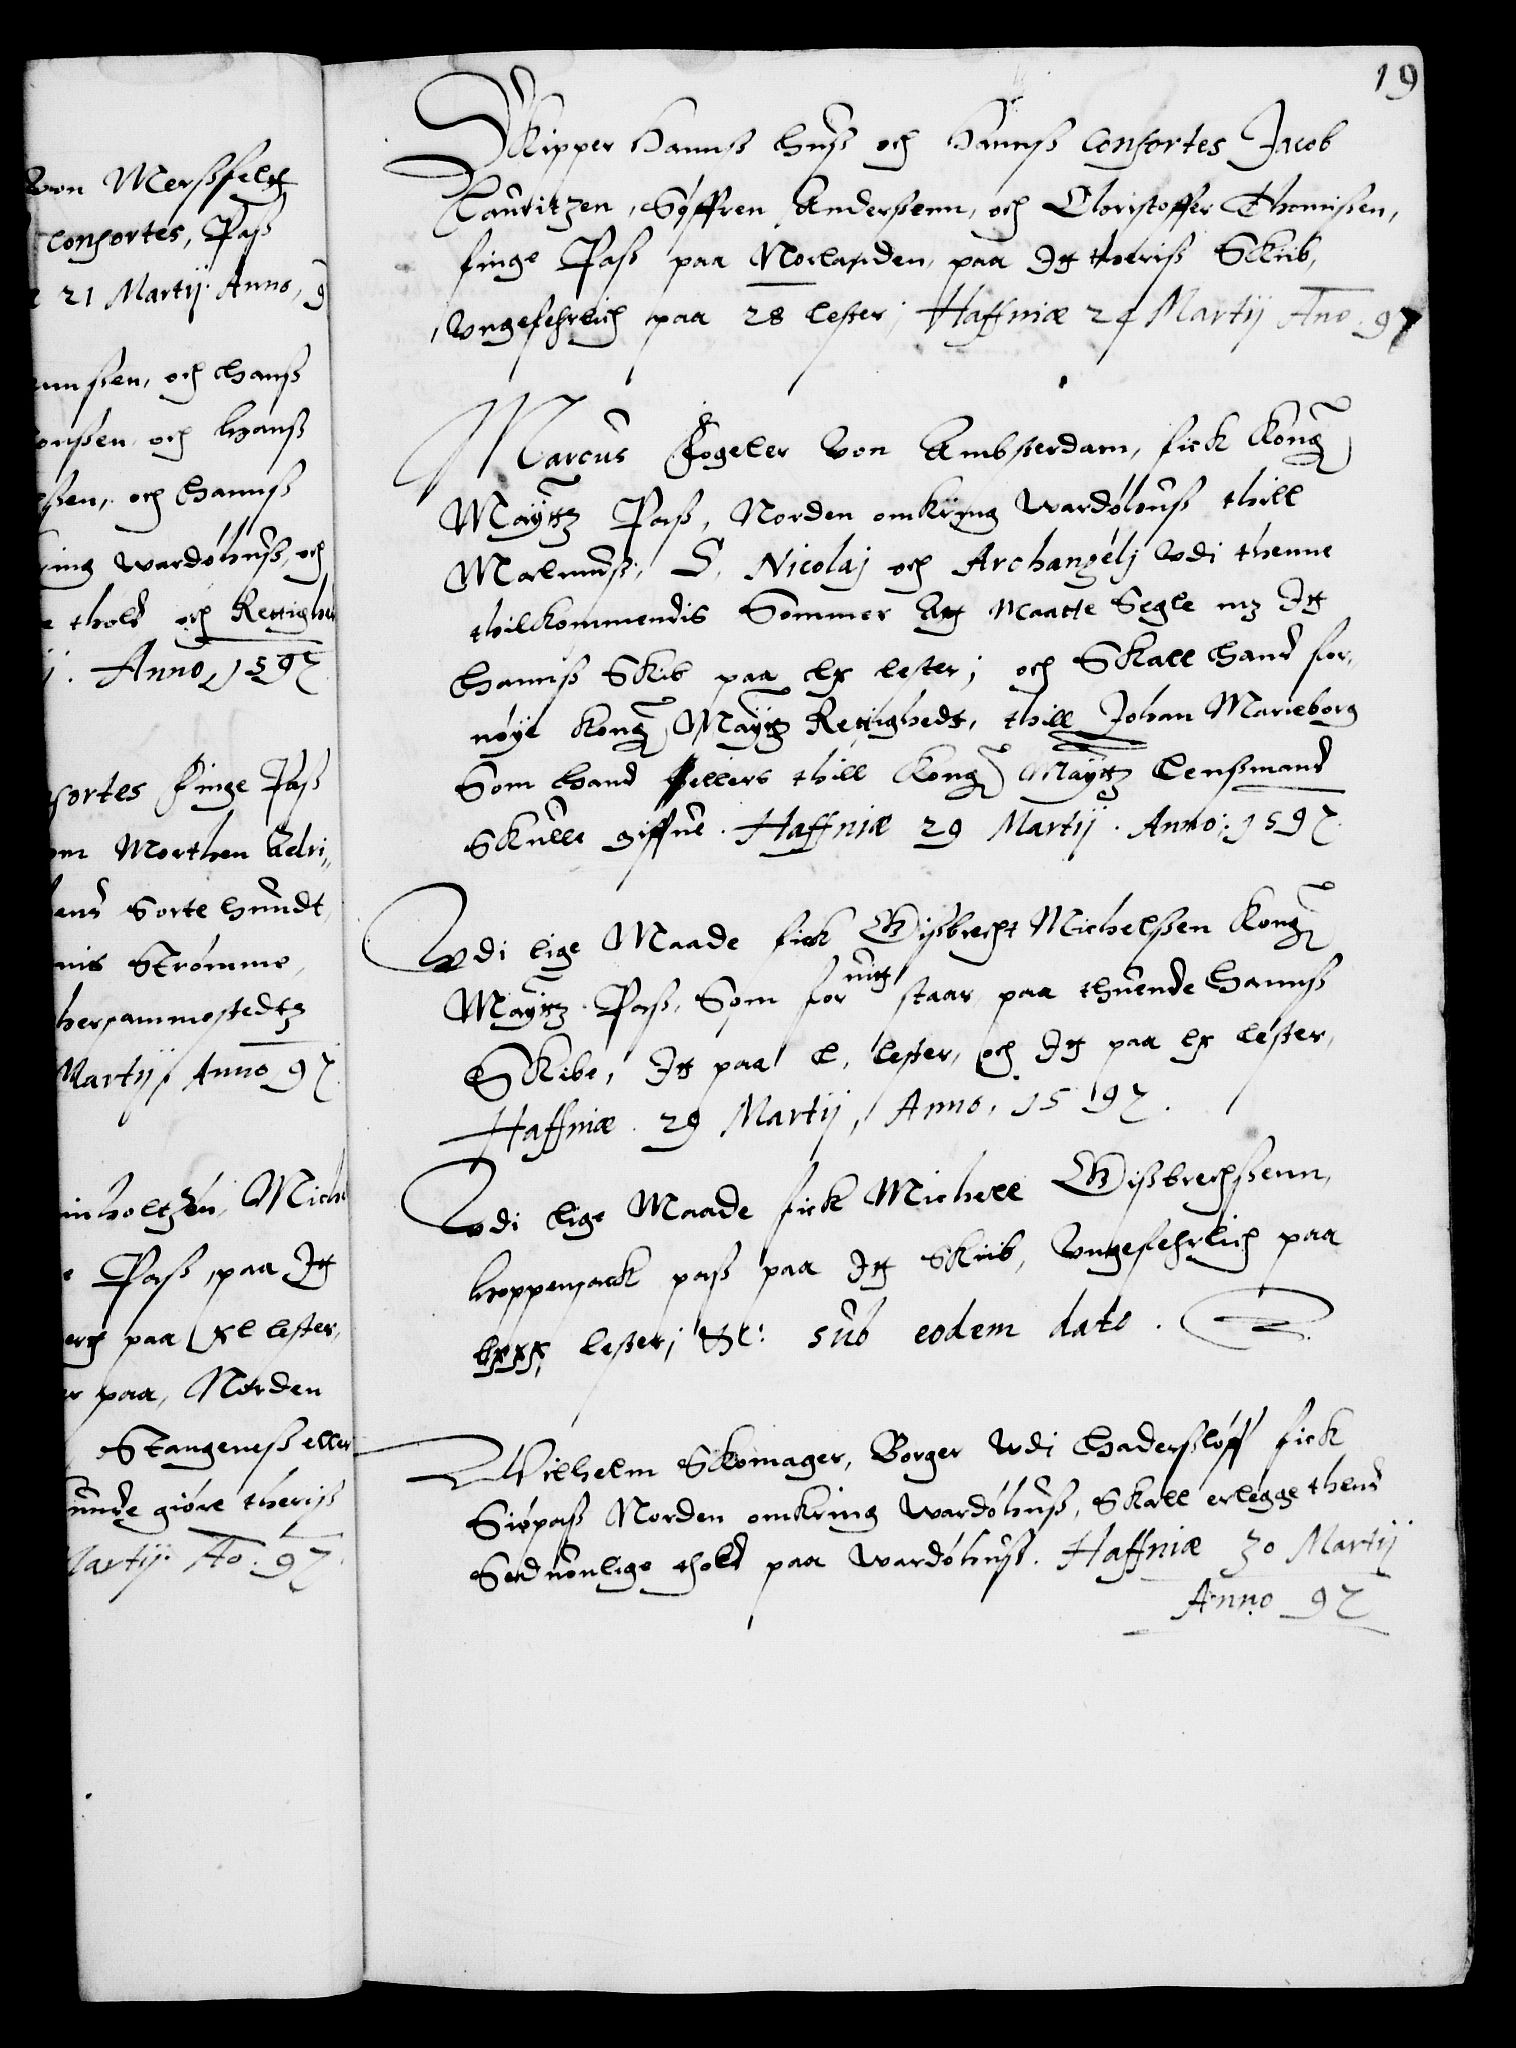 von Merßfeltt
consortes, Paß
21 Martij Anno, 9
och Hanß
och Hanß
ßen, och Hanß
ring Wardøhuß, och
thold och Rettighed
Anno, 1597
sortes Finge Paß
om Morthen Adri,,
Sorte Hundt,
Strømme,
Martij, Anno 97.
Mich
Paß, paa Itt
paa xl lester,
paa, Norden
Stangeneß eller
giøre theris
Martij Ao. 97.
19
Skipper Hanns Huß och Hannß Consortes Jacob
Lauritzen, Søffren Anderßenn, och Christoffer Thomißen,
finge Paß paa Norlanden, paa Itt theriß Skiib,
Vngefehrlich paa 28 lester; Haffniæ 24 Martij Ano. 97
Marcus Fogeler von Ambsterdam, fick Kong
Maÿttz Paß, Norden omkring Wardøhuß thill
Malmuß, S. Nicolaj och Archangelj Vdi thenne
thilkommendis Sommer Att Maatte Segle mz Itt
Hanß Skib paa lx lester; och Skall Hand for,
nøye Kong Maÿttz Rettighedt, thill Johan Marieborg
Som Hand Sellers thill Kong Maÿttz Lenßmand
Skulle giffue. Haffniæ 29 Martij. Anno: 1597
Vdi lige Maade fick Gißbrecht Michelßen Kong
Maÿttz Paß, Som for nitt staar, paa thuende Hannß
Skibe, Itt paa l. lester, och Itt paa lx lester,
Haffniæ. 29 Martij, Anno, 1597.
Vdi lige Maade fick Michell Gißbrechßenn,
Hoppensack paß paa Itt Skiib, Vngefehrlich paa
lxxx, lester; &c: sub eodem dato.
Wilhelm Skomager, Borger Vdi Haderßløff fick
Siøpaß Norden omkring Wardøhuß, Skall erlegge thend
Seduonlige thold paa Wardøhuß. Haffniæ 30 Martij
Anno 97